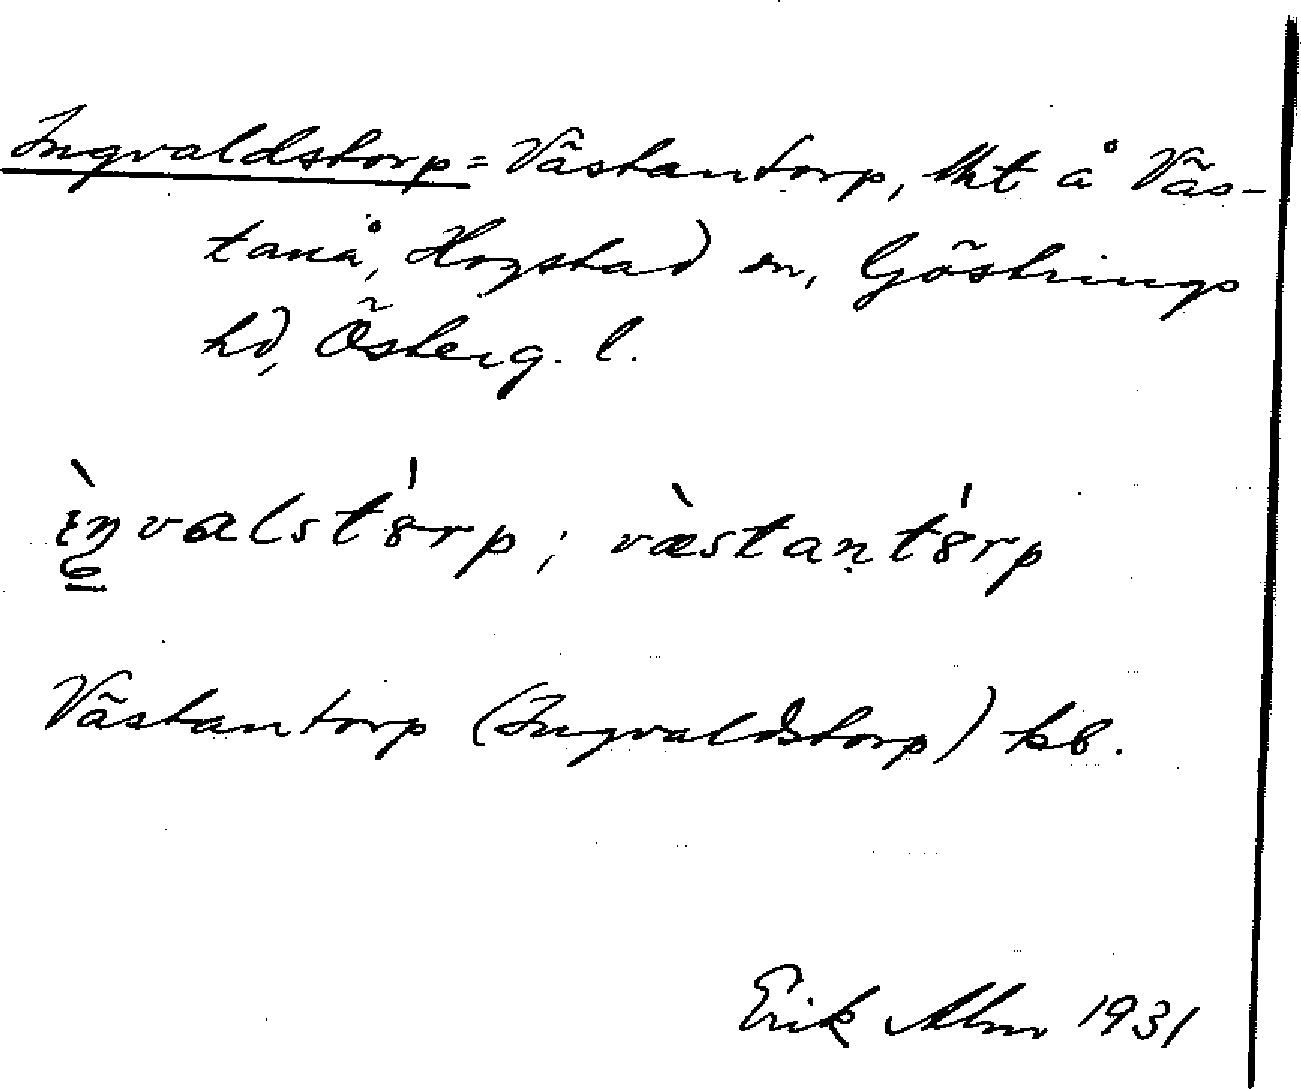 Ingvaldstorp = Västantorp, lht å Väs-
tanå, Hogstad sn, Göstrings
hd, Österg. l.
ìŋvalst8́rp; væ̀stant8́rp
e
Västantorp (Ingvaldstorp) kb.
Erik Alm 1931